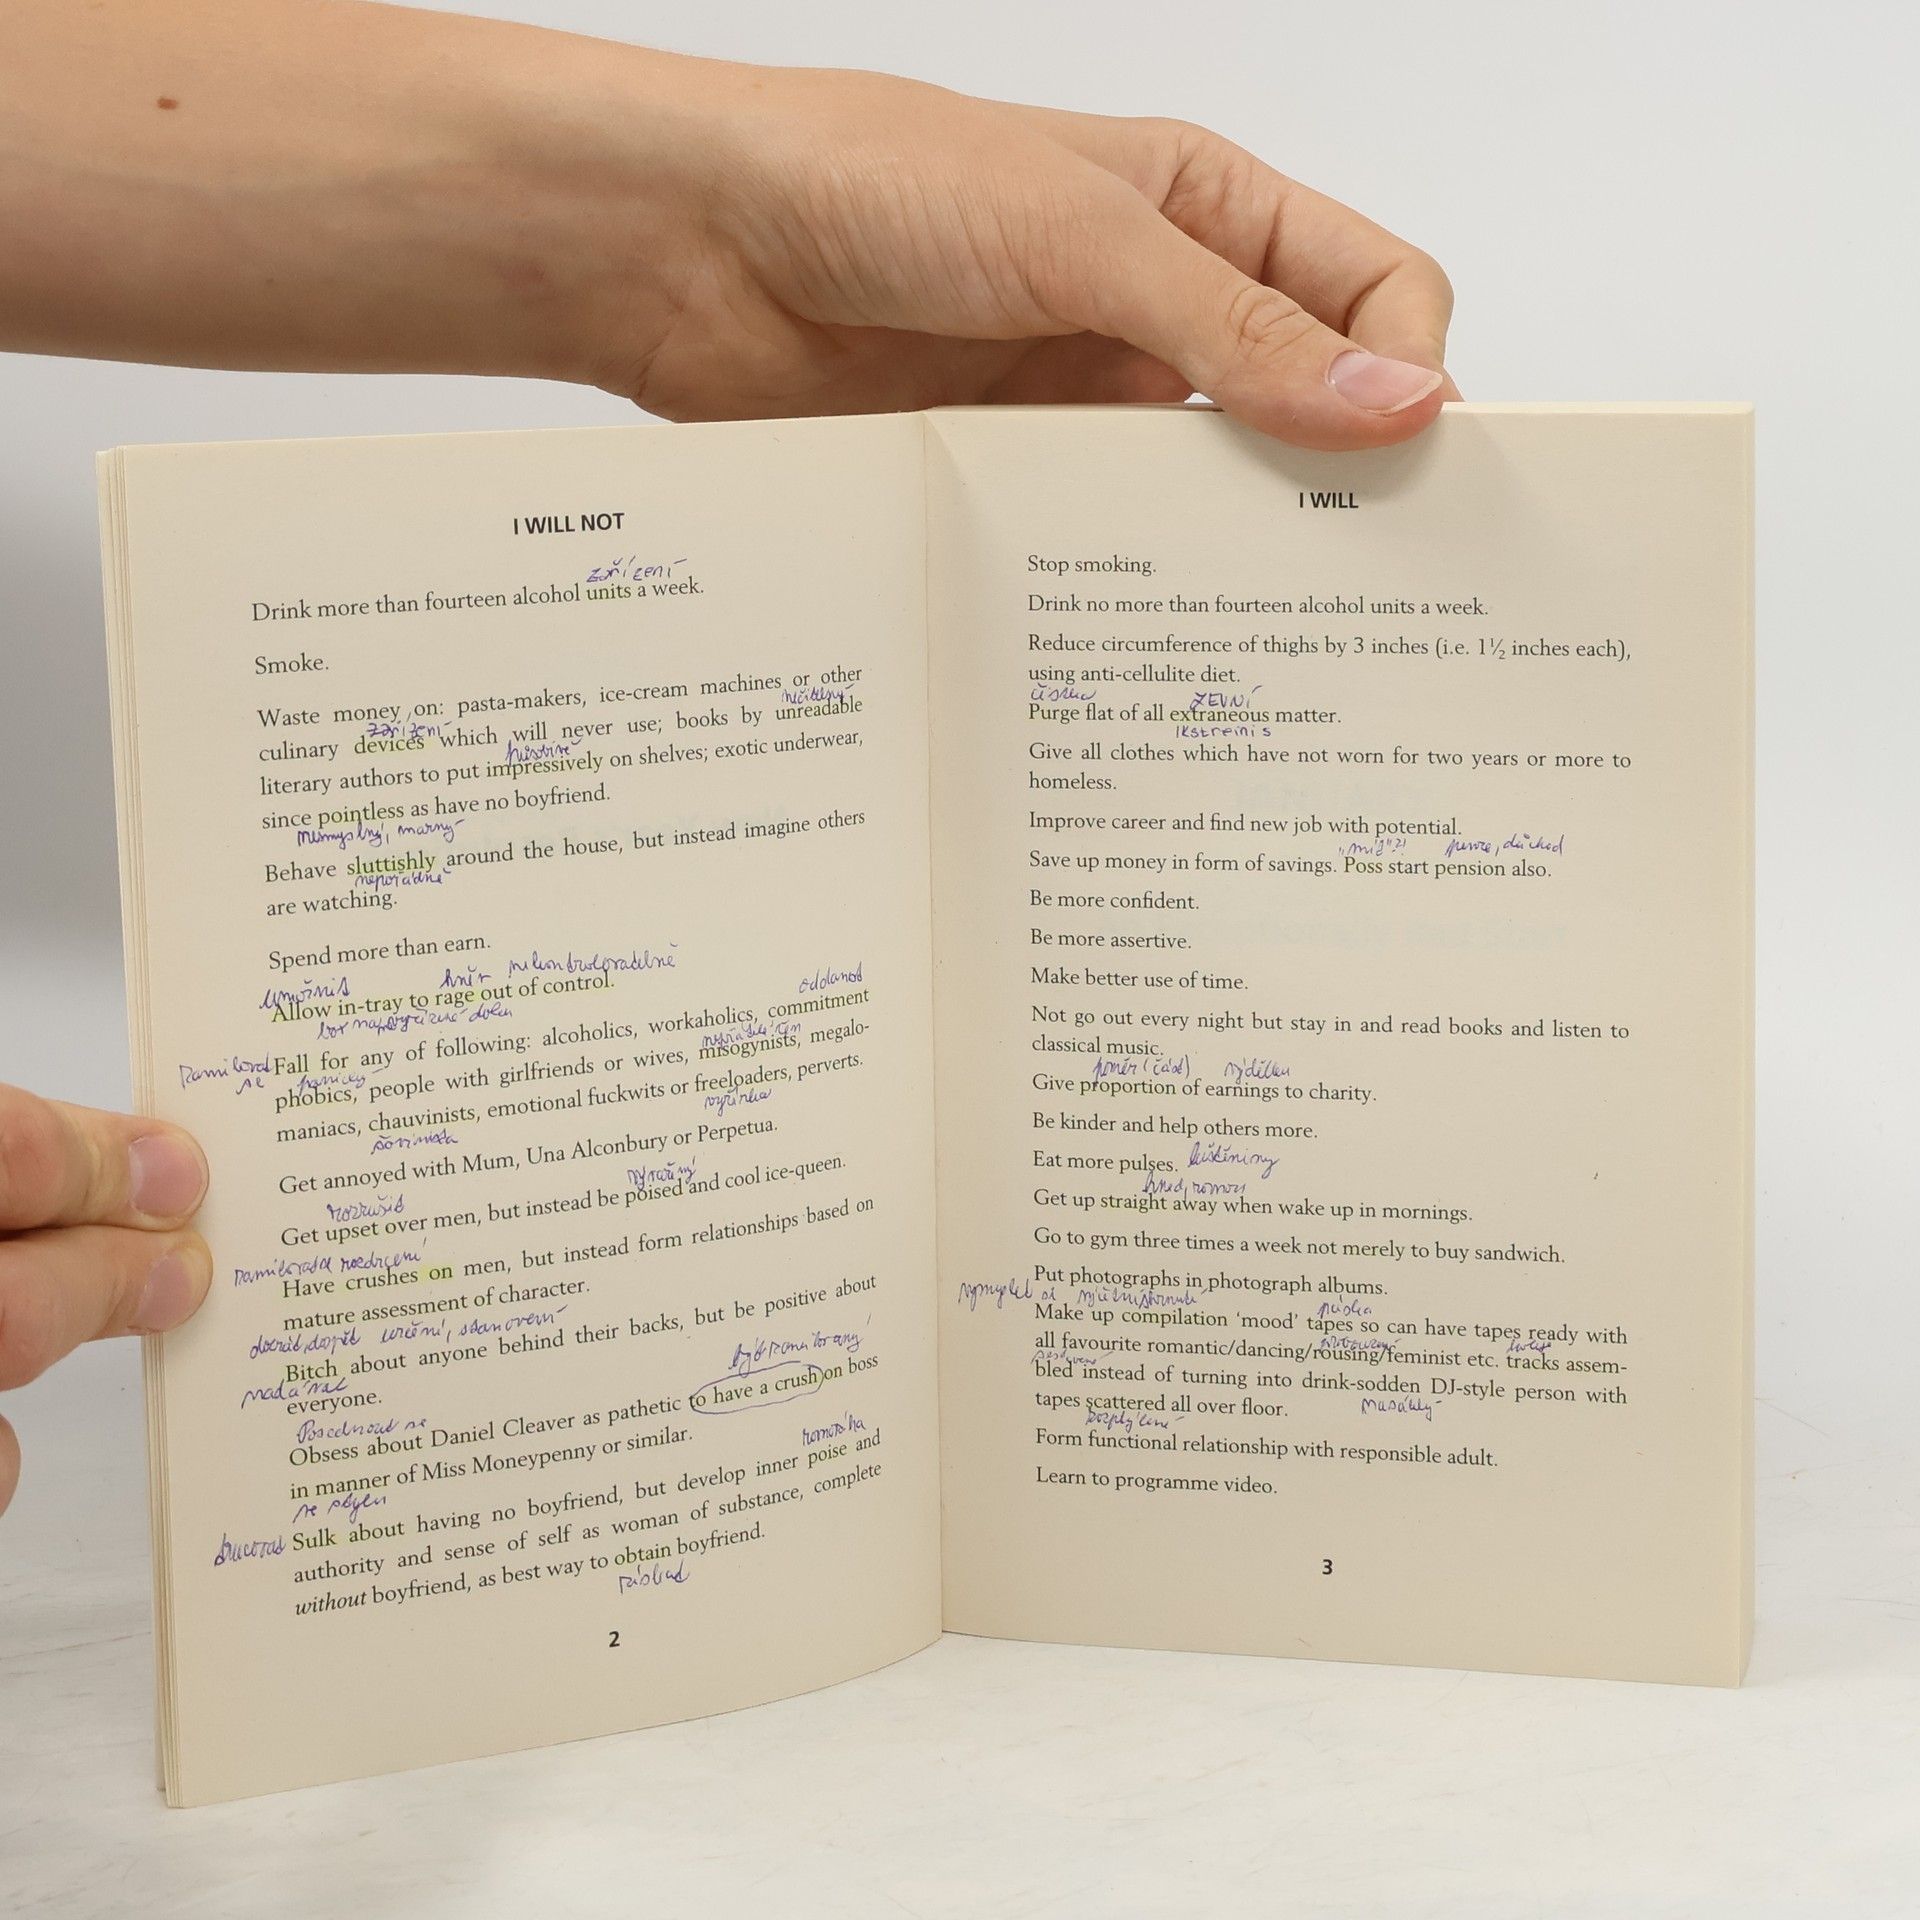 I WILL NOT
zařízení
Drink more than fourteen alcohol units a week.
Smoke.
Waste money on: pasta-makers, ice-cream machines or other
zařízení
culinary devices which will never use; books by unreadable
působivě
literary authors to put impressively on shelves; exotic underwear,
since pointless as have no boyfriend.
nesmyslný, marný
Behave sluttishly around the house, but instead imagine others
nepořádně
are watching.
Spend more than earn.
umožnit hněv nekontrolovatelně
Allow in-tray to rage out of control.
oddanost
Fall for any of following: alcoholics, workaholics, commitment
zamilovat se
phobics, people with girlfriends or wives, misogynists, megalo-
maniacs, chauvinists, emotional fuckwits or freeloaders, perverts.
šovinista
Get annoyed with Mum, Una Alconbury or Perpetua.
rozrušit
Get upset over men, but instead be poised and cool ice-queen.
Have crushes on men, but instead form relationships based on
mature assessment of character.
určení, stanovení
Bitch about anyone behind their backs, but be positive about
nadávat
everyone.
být zamilovaný
Posednout se
Obsess about Daniel Cleaver as pathetic to have a crush on boss
in manner of Miss Moneypenny or similar.
Sulk about having no boyfriend, but develop inner poise and
trucovat
authority and sense of self as woman of substance, complete
without boyfriend, as best way to obtain boyfriend.
získat
2
I WILL
Stop smoking.
Drink no more than fourteen alcohol units a week.
Reduce circumference of thighs by 3 inches (i.e. 1½ inches each),
using anti-cellulite diet.
čistka ZEVNÍ
Purge flat of all extraneous matter.
Give all clothes which have not worn for two years or more to
homeless.
Improve career and find new job with potential.
penze, důchod
Save up money in form of savings. Poss start pension also.
Be more confident.
Be more assertive.
Make better use of time.
Not go out every night but stay in and read books and listen to
classical music.
poměr (část) výdělku
Give proportion of earnings to charity.
Be kinder and help others more.
Eat more pulses. luštěniny
hned, rovnou
Get up straight away when wake up in mornings.
Go to gym three times a week not merely to buy sandwich.
Put photographs in photograph albums.
páska
Make up compilation ‘mood’ tapes so can have tapes ready with
all favourite romantic/dancing/rousing/feminist etc. tracks assem-
bled instead of turning into drink-sodden DJ-style person with
tapes scattered all over floor.
rozptýlené nasáklý
Form functional relationship with responsible adult.
Learn to programme video.
3